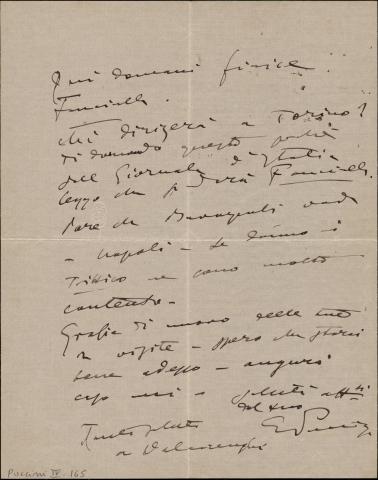 Qui domani finisce
Fanciulla.
Chi dirigerà a Torino?
Ti domando questo perché
dal Giornale d'Italia
leggo che si darà Fanciulla.
Pare che Bavagnoli vada
a Napoli – Se danno il
Trittico ne sono molto
contento –
Grazie di nuovo delle tue
visite – spero che starai
bene adesso – auguri
saluti aff.ti
dal tuo
G Puccini
Tanti saluti
a
Puccini IV. 165